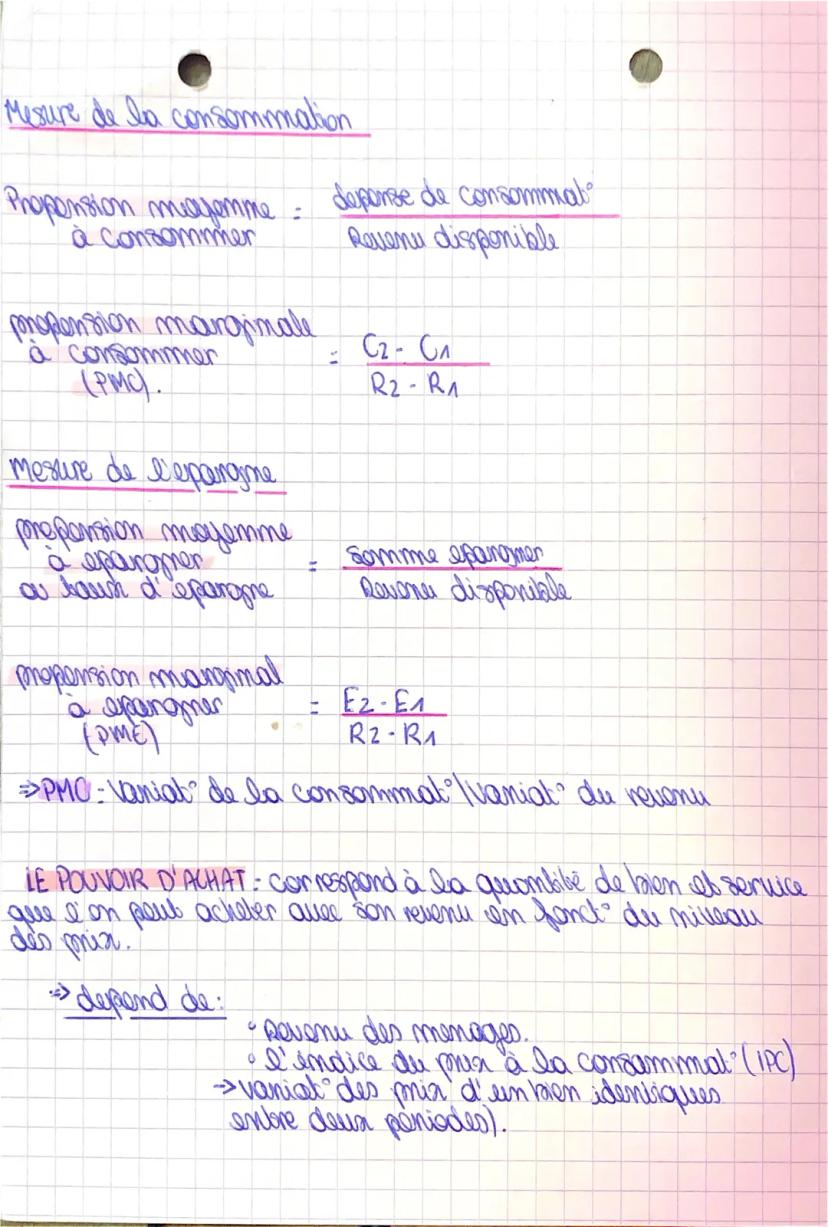 Mesure de la consommation
Propension moyenne = depense de consommat°
à consommer Revenu disponible
propension marginale
à consommer = C2 - C1
(PMC). R2 - R1
Mesure de l'epargne
propension moyenne
à epargner = somme epargner
ou taux d'epargne Revenu disponible
propension marginal
à epargner = E2 - E1
(PME) R2 - R1
=> PMC = Variat° de la consommat° / variat° du revenu
LE POUVOIR D'ACHAT : correspond à la quantité de bien et service
que l'on peut acheter avec son revenu en fonct° du niveau
des prix.
=> depend de :
• Revenu des menages.
• l'indice du prix à la consommat° (IPC)
-> variat° des prix d'un bien identiques
entre deux periodes).